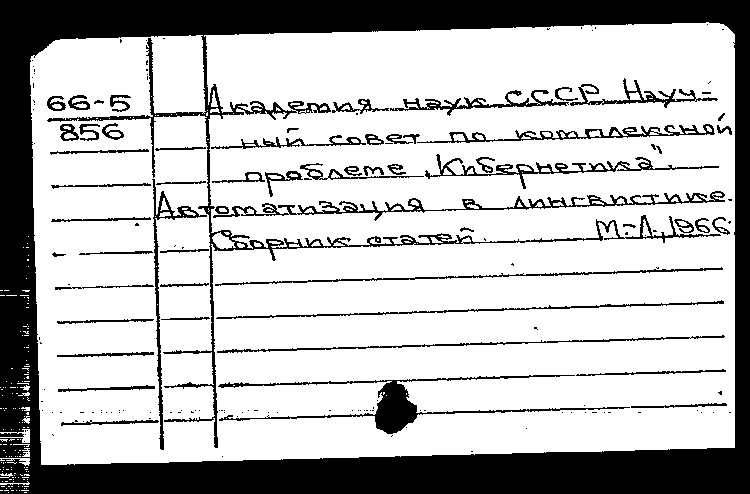 66-5 Академия наук СССР Науч-
856 ный совет по комплексной
проблеме „Кибернетика".
Автоматизация в лингвистике.
Сборник статей. М.-Л., 1966.